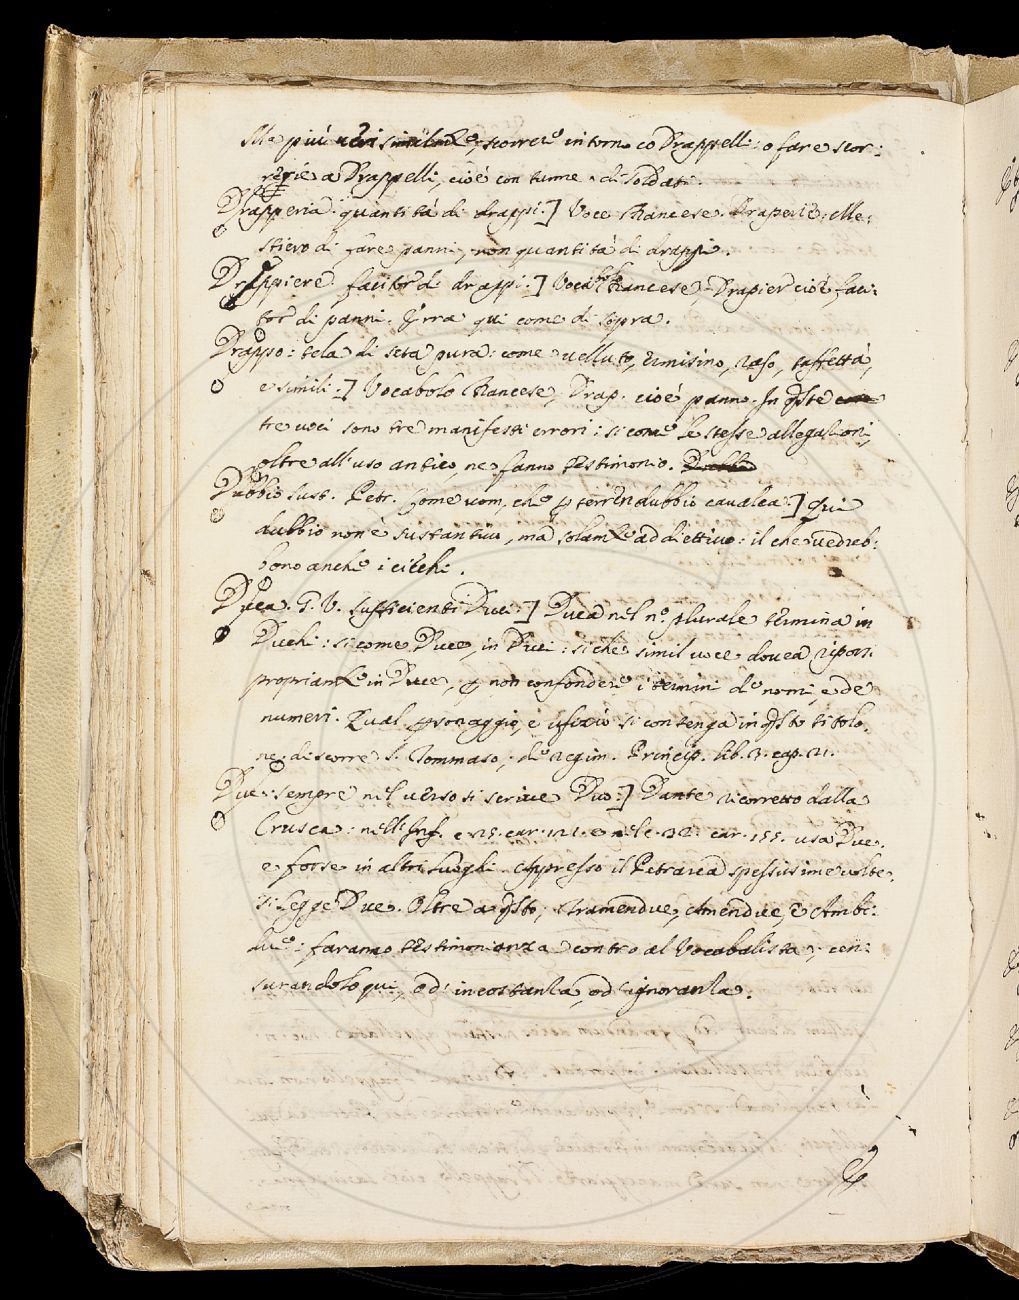 Ma più verisimilmte, scorrere intorno co Drappelli: o fare scor:
rerie a Drappelli, cioè con turme di soldati.
Drapperia: quantità di drappi.] Voce Francese. Draperie: Me:
stiero di fare panni, non quantità di drappi.
Drappiere. facitor di drappi.] Vocabolo Francese, Drapier cioè faci:
tor di panni. Erra qui come di sopra.
Drappo: tela di seta pura: come velluto, ermisino, raso, taffettà,
e simili.] Vocabolo Francese, Drap. cioè panno. In qste
tre voci sono tre manifesti errori: sicome le stesse allegazioni,
oltre all'uso antico, ne fanno testimonio.
Dubbio sust. Petr. Come uom, che p terren dubbio cavalca.] Qui
dubbio non è sustantivo, ma solamte addiettivo: il che vedreb:
bono anche i ciechi.
Duca. G. V. sufficienti Duci.] Duca nel no. plurale termina in
Duchi: sicome Duce, in Duci: sichè simil voce dovea riporsi
propriamte in Duce, p non confondere i termini de nomi, e de
numeri. Qual psonaggio, e ufizio si contenga in qsto titolo,
ne discorre S. Tommaso, de regim. Princip. lib. 3. cap. 21.
Due: sempre nel verso si scrive Duo.] Dante ricorretto dalla
Crusca: nell'Inf. c. 25. car. 121. e nel c. 32. car. 155. usa Due.
e forse in altri luoghi. Appresso il Petrarca spessissime volte
si legge Due. Oltre a qsto, Tramendue, Amendue, e Ambe:
due: faranno testimonianza contro al Vocabolista, cen:
surandolo qui, od' incostanza, od' ignoranza.
E